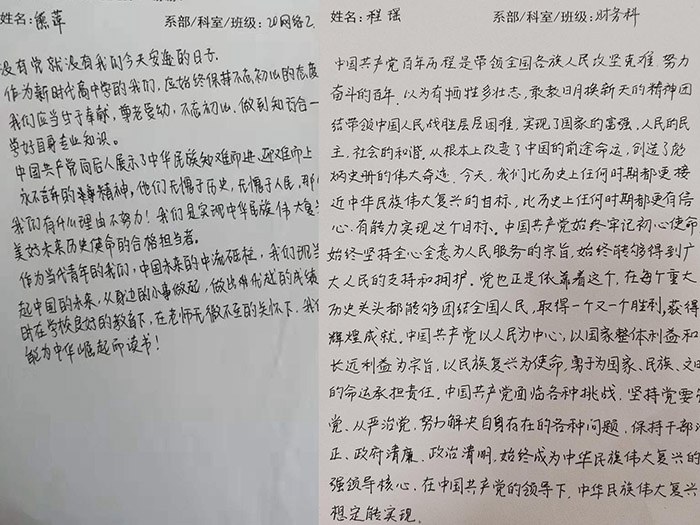 姓名:熊萍 系部/科室/班级:20网络2
没有党就没有我们今天安逸的日子.
作为新时代高中学的我们,应始终保持不忘初心的态度
我们应当甘于奉献,尊老爱幼,不忘初心、做到知行合一
学好自身专业知识。
中国共产党向后人展示了中华民族知难而进,迎难而上
永不言弃的精神,他们无愧于历史,无愧于人民,那
我们有什么理由不努力!我们是实现中华民族伟大复兴
美好未来历史使命的合格担当者。
作为当代青年的我们,中国未来的中流砥柱,我们现
起中国的未来,从身边的小事做起,做出优越的成绩
时在学校良好的教育下,在老师无微不至的关怀下,我
能为中华崛起而读书!
姓名:程瑶 系部/科室/班级:财务科
中国共产党百年历程是带领全国各族人民攻坚克难 努力
奋斗的百年.以为有牺牲多壮志,敢教日月换新天的精神团
结带领中国人民战胜层层困难,实现了国家的富强、人民的民
主,社会的和谐.从根本上改变了中国的前途命运,创造了彪
炳史册的伟大奇迹.今天,我们比历史上任何时期都更接
近中华民族伟大复兴的目标,比历史上任何时期都更有信
心、有能力实现这个目标。中国共产党始终牢记初心使命
始终坚持全心全意为人民服务的宗旨,始终能够得到广
大人民的支持和拥护。党也正是依靠着这个,在每个重大
历史关头都能够团结全国人民,取得一个又一个胜利,获得
辉煌成就.中国共产党以人民为中心,以国家整体利益和
长远利益为宗旨,以民族复兴为使命,勇于为国家、民族、文
的命运承担责任.中国共产党面临各种挑战,坚持党要
党、从严治党,努力解决自身存在的各种问题,保持干部
正、政府清廉、政治清明,始终成为中华民族伟大复兴的
强领导核心.在中国共产党的领导下,中华民族伟大复兴
想定能实现.